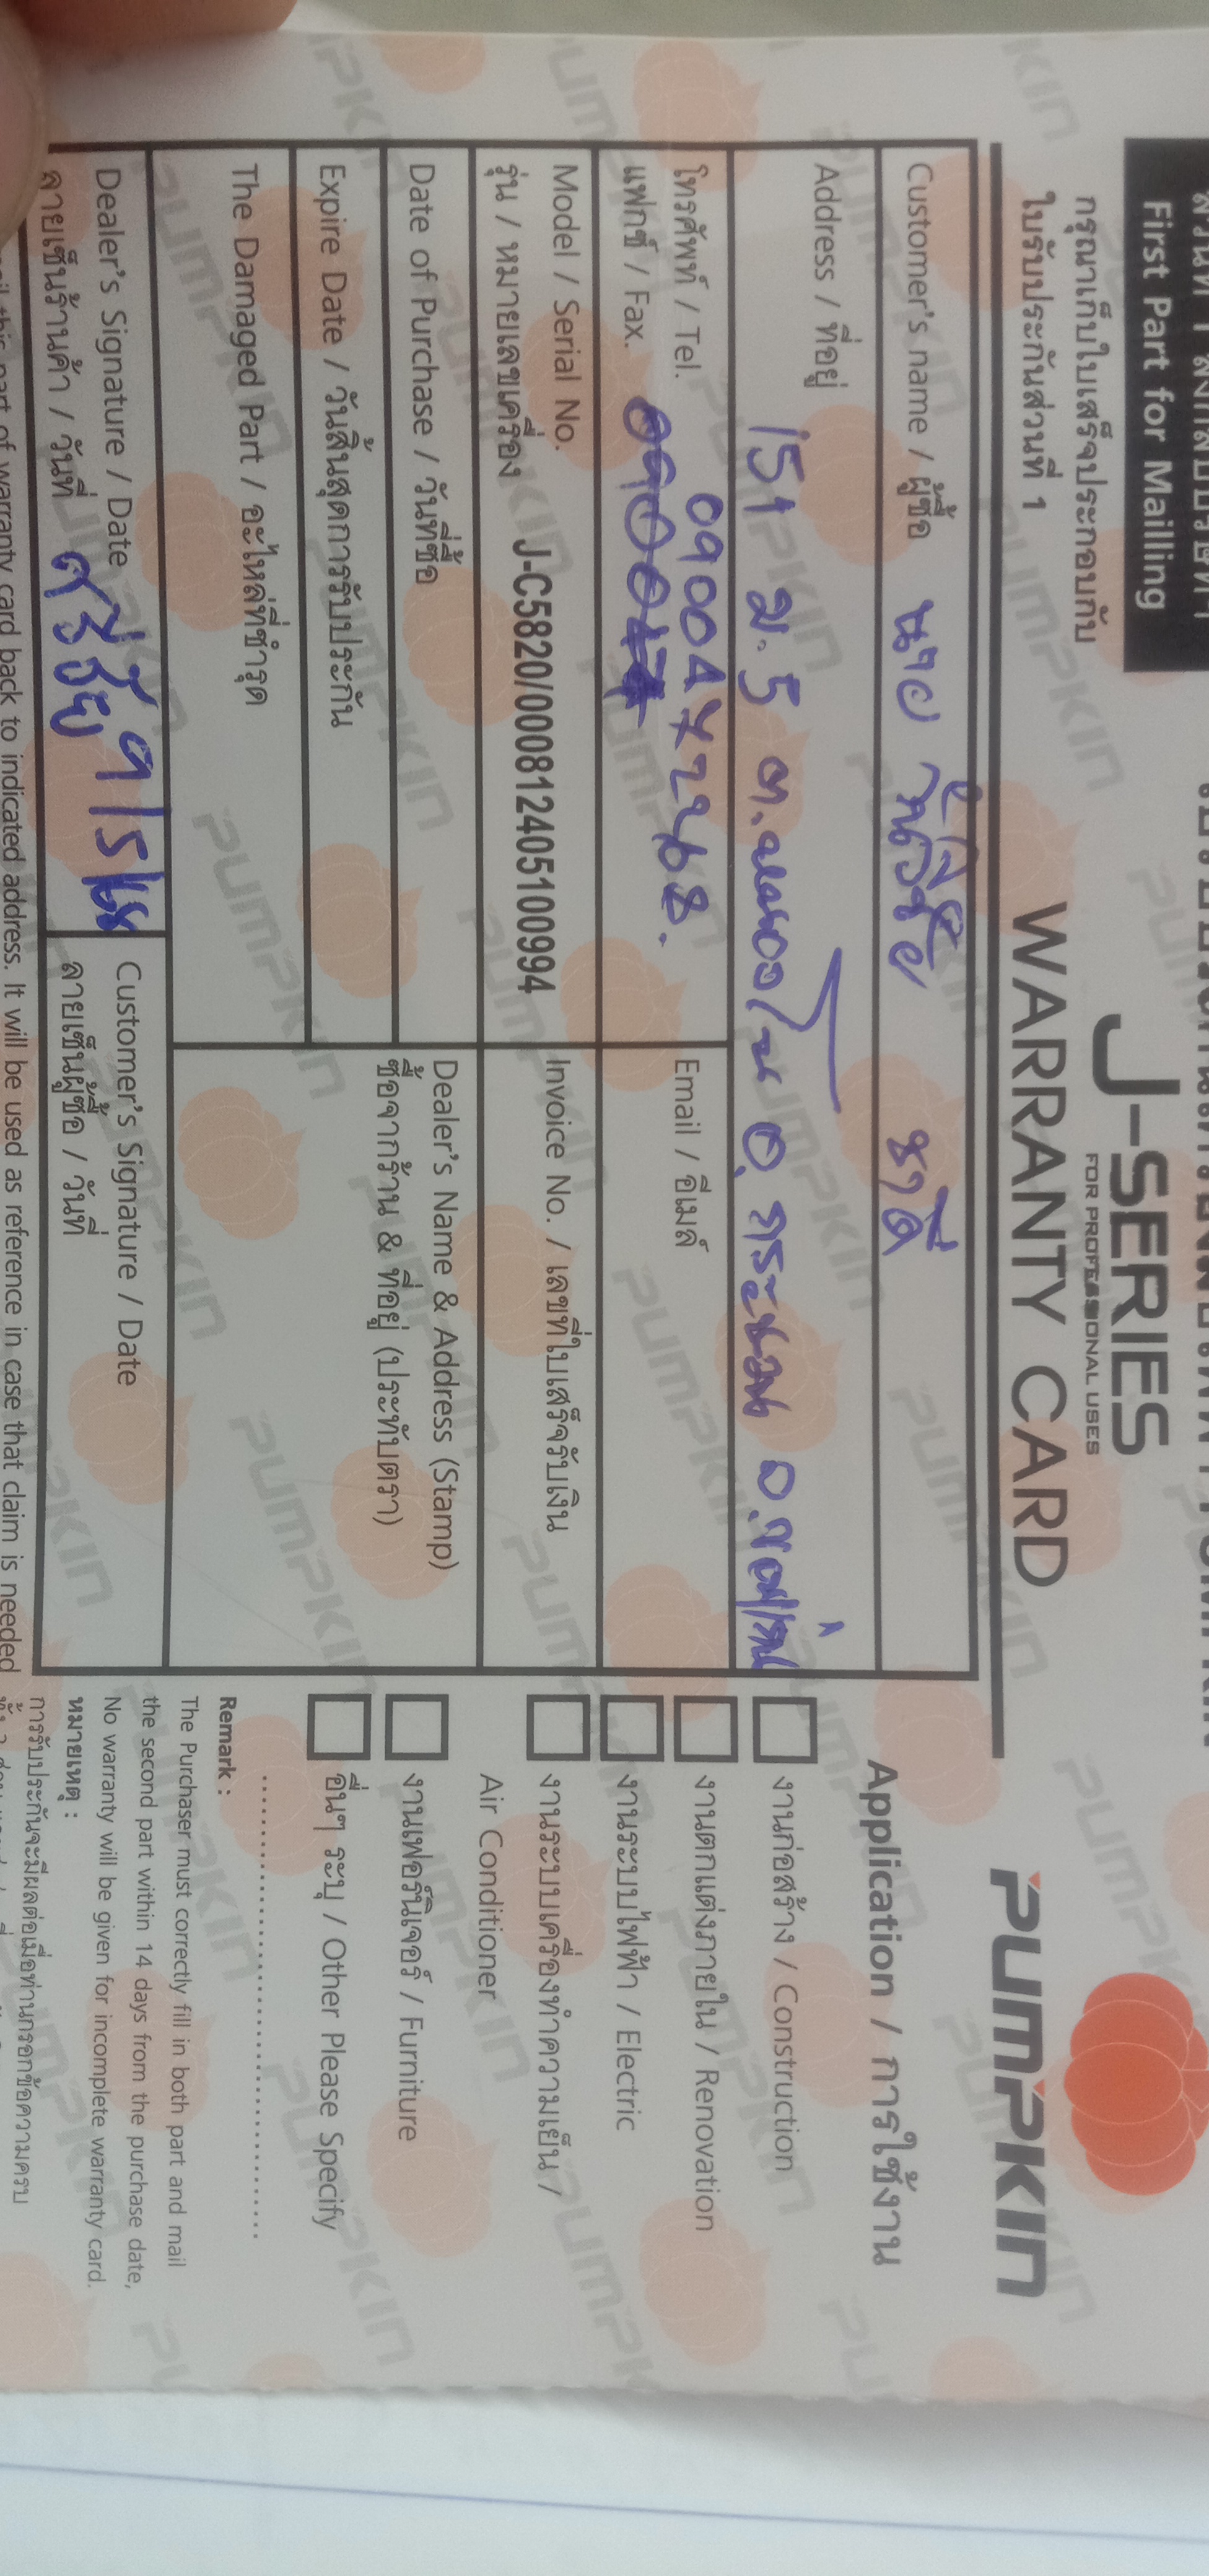 First Part for Mailling
กรุณาเก็บใบเสร็จประกอบกับ
ใบรับประกันส่วนที่ 1
J-SERIES
FOR PROFESSIONAL USES
WARRANTY CARD
PUMPKIN
Customer's name / ผู้ซื้อ นาย วันวิชัย ชาติ
Address / ที่อยู่
151 ม.5 ต. อ. กระนวน จ.ขอนแก่น
โทรศัพท์ / Tel. 0900472268.
แฟกซ์ / Fax.
Email / อีเมล์
Model / Serial No.
รุ่น / หมายเลขเครื่อง J-C5820/000812405100994
Invoice No. / เลขที่ใบเสร็จรับเงิน
Date of Purchase / วันที่ซื้อ
Expire Date / วันสิ้นสุดการรับประกัน
Dealer's Name & Address (Stamp)
ชื่อจากร้าน & ที่อยู่ (ประทับตรา)
The Damaged Part / อะไหล่ที่ชำรุด
Dealer's Signature / Date
ลายเซ็นร้านค้า / วันที่
Customer's Signature / Date
ลายเซ็นผู้ซื้อ / วันที่
part of warranty card back to indicated address. It will be used as reference in case that claim is needed
Application / การใช้งาน
งานก่อสร้าง / Construction
งานตกแต่งภายใน / Renovation
งานระบบไฟฟ้า / Electric
งานระบบเครื่องทำความเย็น /
Air Conditioner
งานเฟอร์นิเจอร์ / Furniture
อื่นๆ ระบุ / Other Please Specify
Remark :
The Purchaser must correctly fill in both part and mail
the second part within 14 days from the purchase date,
No warranty will be given for incomplete warranty card.
หมายเหตุ :
การรับประกันจะมีผลต่อเมื่อท่านกรอกข้อความครบ